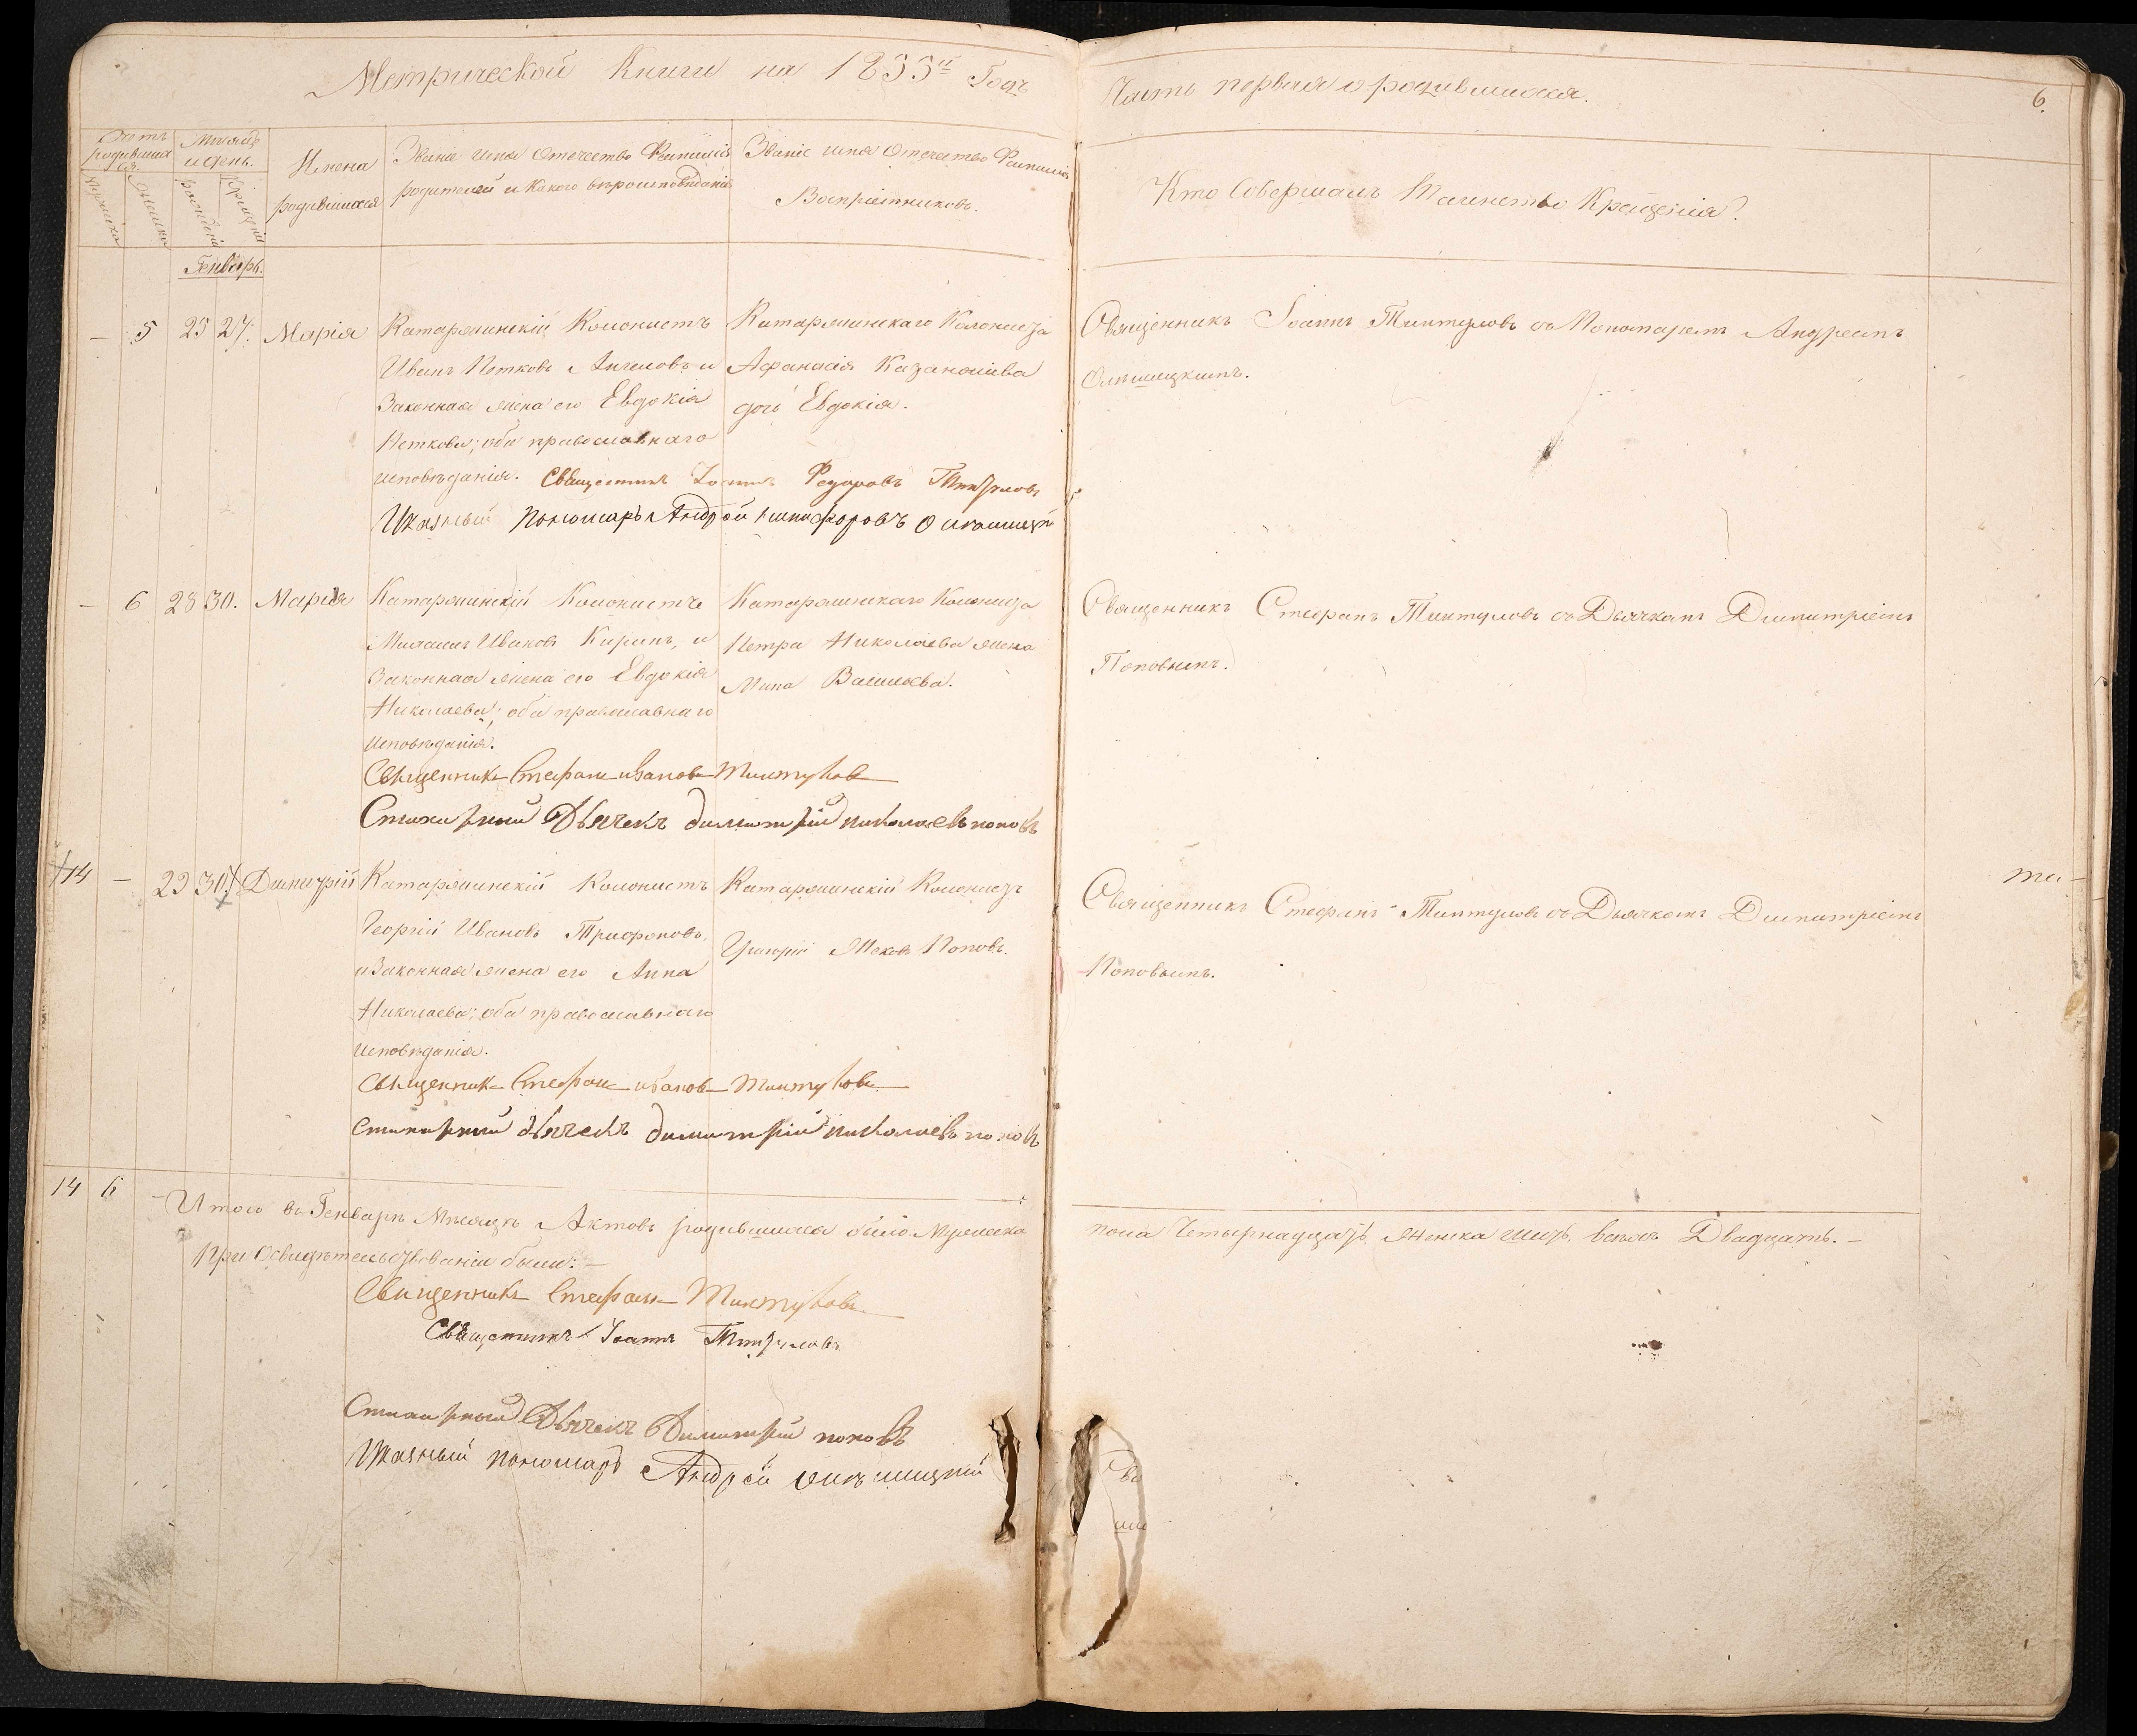 Метрической Книги на 1855й Годъ
Часть первая о родившихся.
6.
Счетъ родившихся.
Мѣсяцъ и день.
Имена родившихся
Званіе имя отечество Фамилія родителей и какого вѣроисповѣданія
Званіе имя отечество Фамилія Воспріемниковъ.
Кто Совершалъ Таинство Крещенія?
мужска
женска
рожденія
крещенія
Генварь.
— 5 25 27. Марія
Катаржинскій Колонистъ
Иванъ Петковъ Ангеловъ и
Законная жена его Евдокія
Петкова; оба православнаго
исповѣданія.
Катаржинскаго Колониста
Афанасія Казанжіева
дочь Евдокія.
Священникъ Іоаннъ Тинтуловъ съ Пономаремъ Андреемъ
Ольшицкимъ.
Священникъ Іоаннъ Федоровъ Тинтуловъ
Указный Пономаръ Андрей никифоровъ
— 6 28 30. Марія
Катаржинскій Колонистъ
Ивановъ Киранъ, и
Законная жена его Евдокія
Николаева; оба православнаго
исповѣданія.
Катаржинскаго Колониста
Петра Николаева жена
Васильева.
Священникъ Стефанъ Тинтуловъ съ Дьячкомъ Димитріемъ
Поповымъ.
Священникъ Стефанъ ивановъ Тинтуловъ
Стихарный Дьячекъ димитрій николаевъ поповъ
14 — 29 30. Димитрій
Катаржинскій Колонистъ
Георгій Ивановъ Трифоновъ,
и Законная жена его Анна
Николаева; оба православнаго
исповѣданія.
Катаржинскій Колонистъ
Григорій Жековъ Поповъ.
Священникъ Стефанъ Тинтуловъ съ Дьячкомъ Димитріемъ
Поповымъ.
Священникъ Стефанъ ивановъ Тинтуловъ
стихарный дьячекъ димитрій николаевъ поповъ
14 6
Итого въ Генварѣ Мѣсяцѣ Актовъ родившихся было: Мужеска
пола Четырнадцать, женска шесть, всѣхъ Двадцать. —
При Освидѣтельствованіи были: —
Священникъ Стефанъ Тинтуловъ
Священникъ Іоаннъ Тинтуловъ
Стихарный Дьячекъ Димитрій поповъ
Указный пономарь Андрей олшшицкій